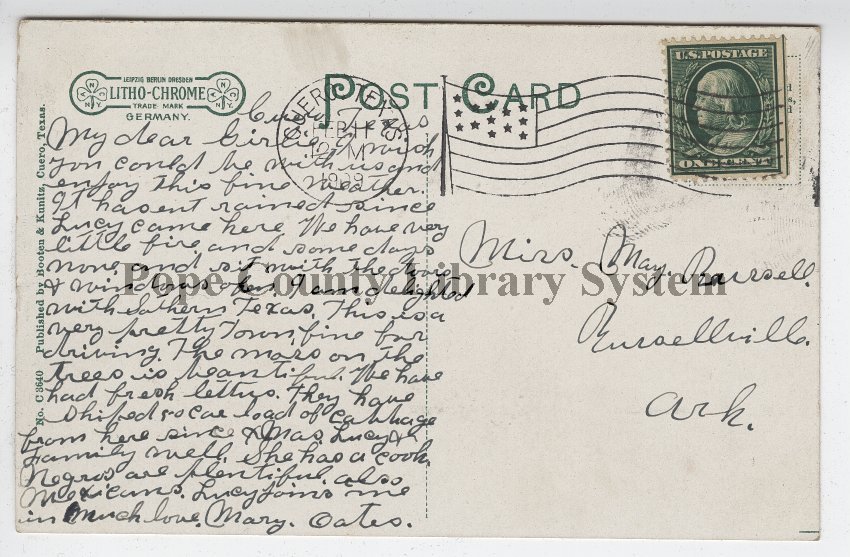 POST CARD
LEIPZIG BERLIN DRESDEN
LITHO-CHROME
TRADE MARK
GERMANY.
No. C 3640 Published by Booten & Kunitz, Cuero, Texas.
CUERO TEXAS
FEB 11
12 M
1909
U.S. POSTAGE
ONE CENT
Cuero Texas
My dear Girlie I wish
you could be with us and
enjoy this fine weather.
It hasent rained since
Lucy came here. We have very
little fire and some days
none and sit with the doors
& windows open I am delighted
with Sothern Texas. This is a
very pretty Town, fine for
driving. The moss on the
trees is beautiful. We have
had fresh lettus. They have
shiped 50 car load of cabbage
from here since Xmas Lucy &
family well. She has a cook.
Negros are plentiful. also
Mexicans. Lucy joins me
in much love. Mary. Oates.
Miss. May. Russell.
Russellville.
Ark.
Pope County Library System